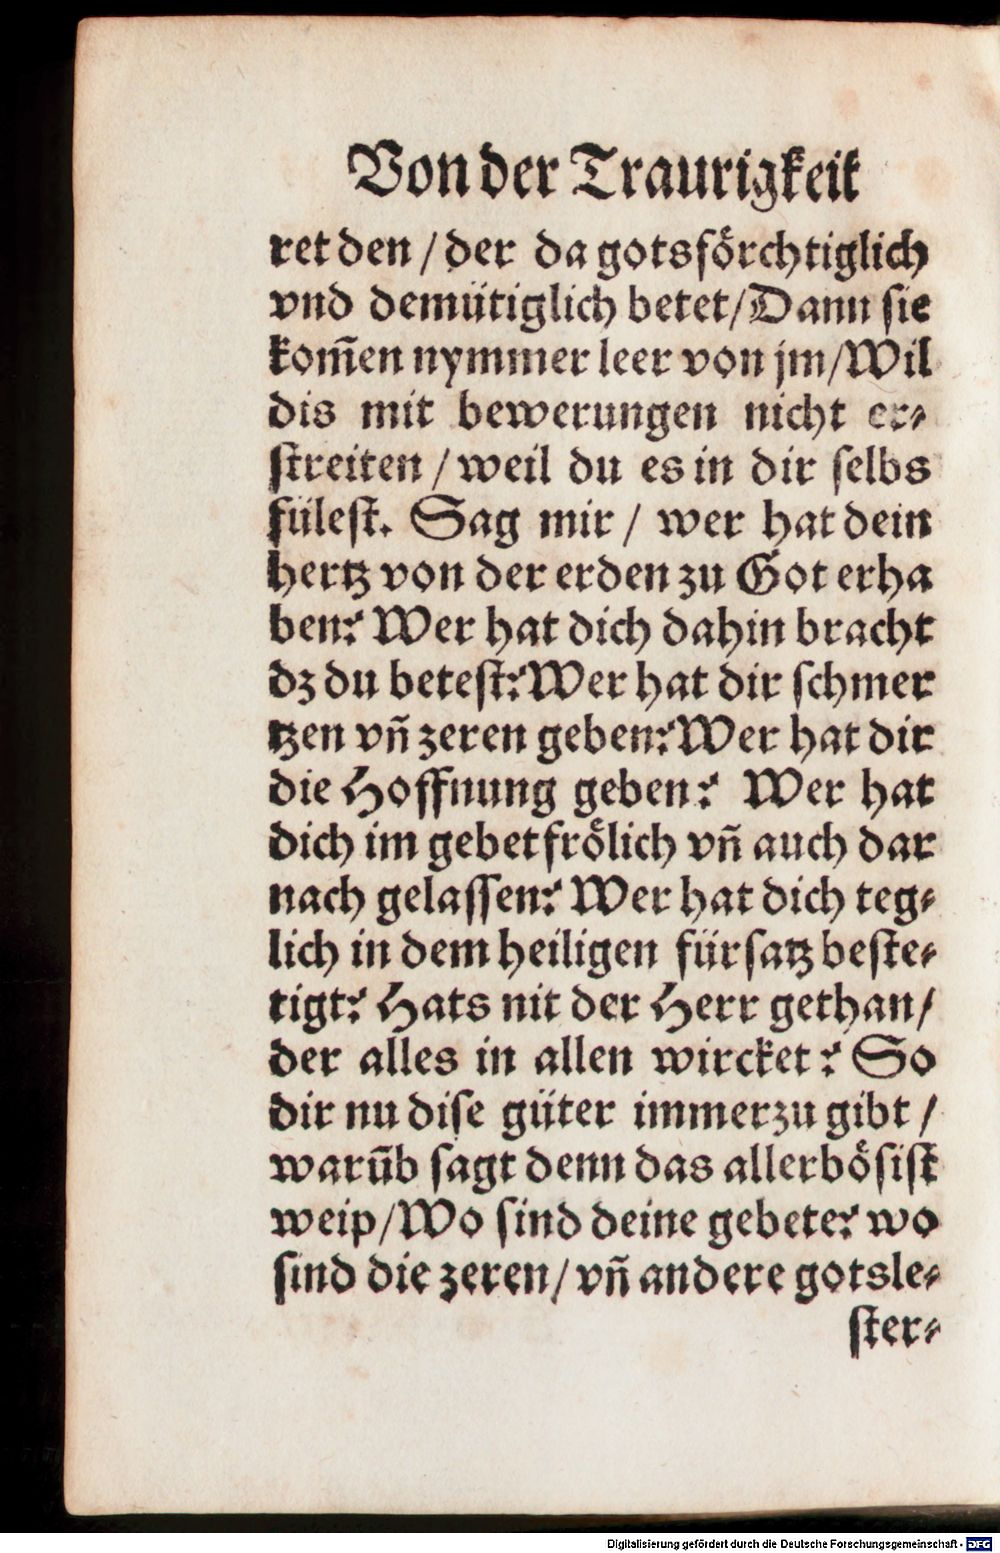 Von der Traurigkeit
ret den / der da gotsförchtiglich
vnd demütiglich betet/Dann sie
kom̃en nymmer leer von jm/Wil
dis mit bewerungen nicht er⸗
streiten / weil du es in dir selbs
fülest. Sag mir / wer hat dein
hertz von der erden zu Got erha
ben? Wer hat dich dahin bracht
dz du betest? Wer hat dir schmer
tzen vñ zeren geben? Wer hat dir
die Hoffnung geben? Wer hat
dich im gebet frölich vñ auch dar
nach gelassen? Wer hat dich teg⸗
lich in dem heiligen fürsatz beste⸗
tigt? Hats nit der Herr gethan/
der alles in allen wircket? So
dir nu dise güter immerzu gibt /
warũb sagt denn das allerbösist
weip/Wo sind deine gebete? wo
sind die zeren/ vñ andere gotsle⸗
ster⸗
Digitalisierung gefördert durch die Deutsche Forschungsgemeinschaft - DFG